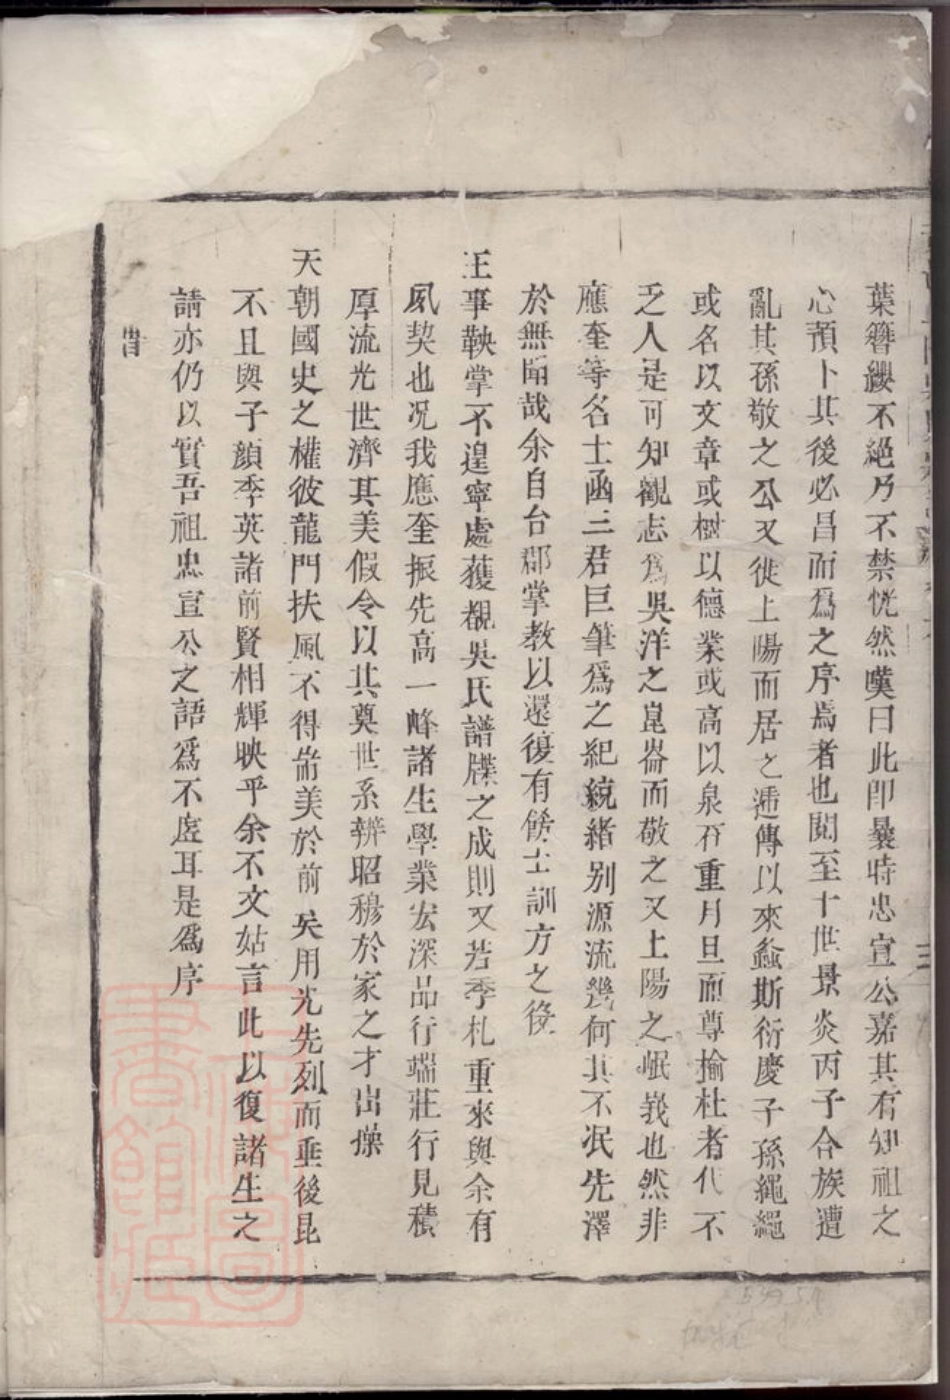 葉簪纓不絕乃不禁恍然嘆曰此卽曩時忠宣公嘉其有知祖之
心預卜其後必昌而爲之序焉者也閱至十世景炎丙子合族遭
亂其孫敬之公又徙上陽而居之遞傳以來螽斯衍慶子孫繩繩
或名以文章或樹以德業或高以泉石重月旦而尊揄杜者代不
乏人是可知觀志爲吳洋之崑崙而敬之又上陽之岷峩也然非
應奎等名士函三君巨筆爲之紀統緒別源流幾何其不泯先澤
於無聞哉余自台郡掌教以還復有餘士訓方之役
王事鞅掌不遑寧處獲覩吳氏譜牒之成則又若季札重來與余有
夙契也况我應奎振先高一峰諸生學業宏深品行端莊行見積
厚流光世濟其美假令以其奠世系辨昭穆於家之才出操
天朝國史之權彼龍門扶風不得耑美於前矣用光先烈而垂後昆
不且與子顏季英諸前賢相輝映乎余不文姑言此以復諸生之
請亦仍以實吾祖忠宣公之語爲不虛耳是爲序